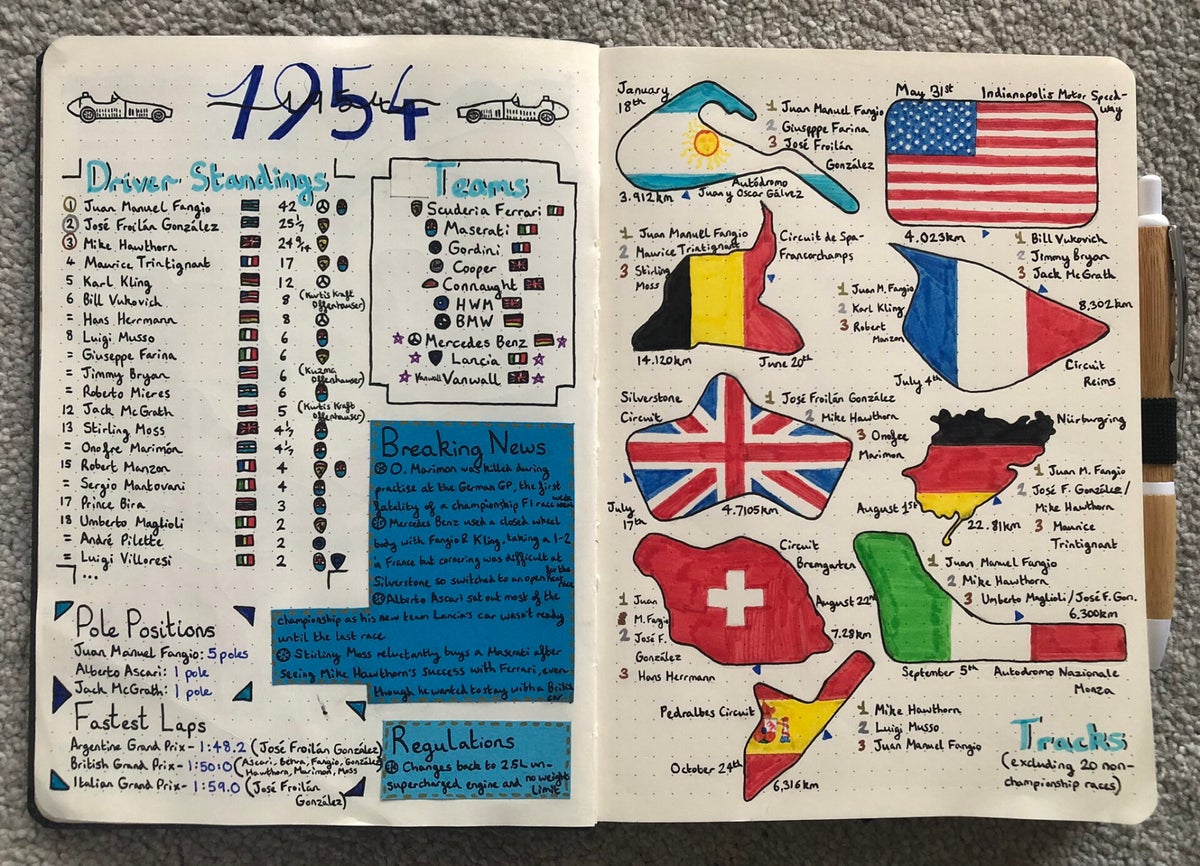 1954
Driver Standings
1 Juan Manuel Fangio 42
2 José Froilán González 25 1/7
3 Mike Hawthorn 24 9/14
4 Maurice Trintignant 17
5 Karl Kling 12
6 Bill Vukovich 8 (Kurtis Kraft
Offenhauser)
= Hans Herrmann 8
8 Luigi Musso 6
= Giuseppe Farina 6
= Jimmy Bryan 6 (Kuzma
Offenhauser)
= Roberto Mieres 6
12 Jack McGrath 5 (Kurtis Kraft
Offenhauser)
13 Stirling Moss 4 1/7
= Onofre Marimón 4 1/7
15 Robert Manzon 4
= Sergio Mantovani 4
17 Prince Bira 3
18 Umberto Maglioli 2
= André Pilette 2
= Luigi Villoresi 2
...
Teams
Scuderia Ferrari
Maserati
Gordini
Cooper
Connaught
HWM
BMW
Mercedes Benz
Lancia
Vanwall Vanwall
Breaking News
O. Marimon was killed during
practise at the German GP, the first
fatality of a championship F1 race week
Mercedes Benz used a closed wheel
body with Fangio & Kling, taking a 1-2
in France but cornering was difficult at
Silverstone so switched to an open for the next race
Alberto Ascari sat out most of the
championship as his new team Lancia's car wasn't ready
until the last race
Stirling Moss reluctantly buys a Maserati after
seeing Mike Hawthorn's success with Ferrari, even
though he wanted to stay with a British
car
Pole Positions
Juan Manuel Fangio: 5 poles
Alberto Ascari: 1 pole
Jack McGrath: 1 pole
Fastest Laps
Argentine Grand Prix - 1:48.2 (José Froilán González)
British Grand Prix - 1:50:0 (Ascari, Behra, Fangio, González
Hawthorn, Marimon, Moss)
Italian Grand Prix - 1:59.0 (José Froilán
González)
Regulations
Changes back to 2.5L un-
supercharged engine and no weight
limit
January
18th
1 Juan Manuel Fangio
2 Giuseppe Farina
3 José Froilán
González
Autódromo
Juan y Oscar Gálvez
3.912km
May 31st
Indianapolis Motor Speed-
way
4.023km
1 Bill Vukovich
2 Jimmy Bryan
3 Jack McGrath
1 Juan Manuel Fangio
2 Maurice Trintignant
3 Stirling
Moss
Circuit de Spa-
Francorchamps
14.120km
June 20th
1 Juan M. Fangio
2 Karl Kling
3 Robert
Manzon
8,302km
July 4th
Circuit
Reims
Silverstone
Circuit
1 José Froilán González
2 Mike Hawthorn
3 Onofre
Marimon
July
17th
4.7105km
Nürburgring
1 Juan M. Fangio
2 José F. González/
Mike Hawthorn
3 Maurice
Trintignant
August 1st
22.81km
Circuit
Bremgarten
August 22nd
7.28km
1 Juan
M. Fangio
2 José F.
González
3 Hans Herrmann
1 Juan Manuel Fangio
2 Mike Hawthorn
3 Umberto Maglioli/José F. Gon.
6.300km
September 5th
Autodromo Nazionale
Monza
Pedralbes Circuit
1 Mike Hawthorn
2 Luigi Musso
3 Juan Manuel Fangio
October 24th
6,316km
Tracks
(excluding 20 non-
championship races)